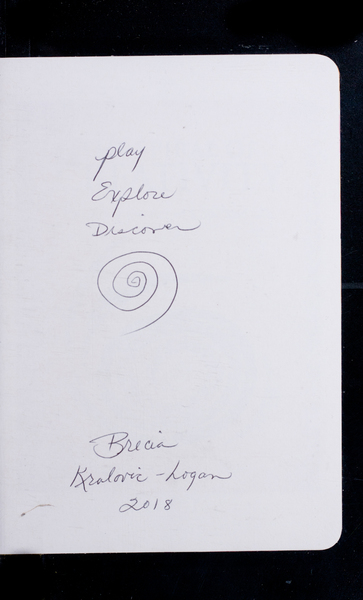 play
Explore
Discover
Brecia
Kralovic-Logan
2018